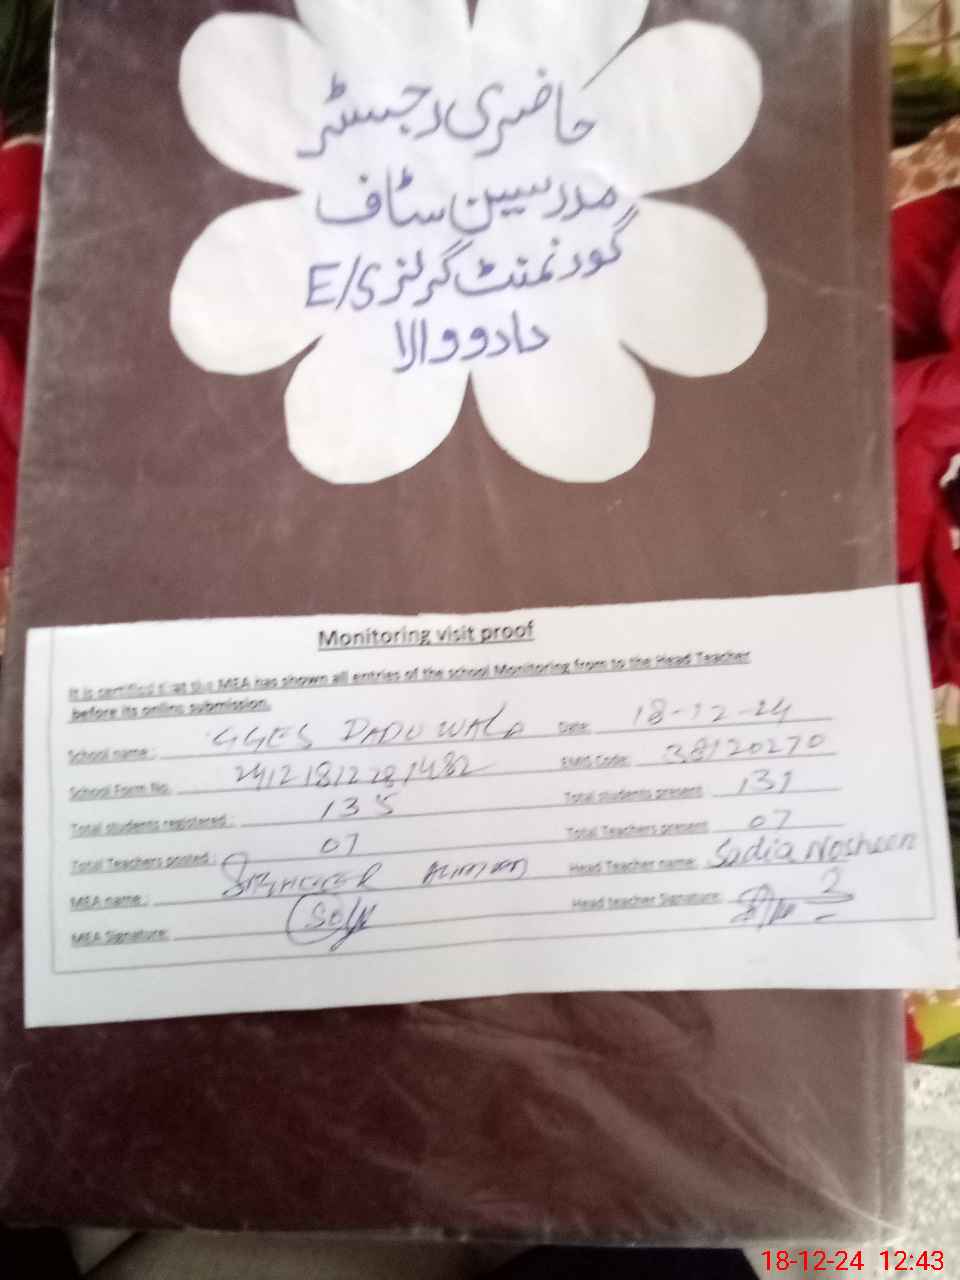 حاضری رجسٹر
مدرسین سٹاف
گورنمنٹ گرلز E/S
دادو والا
Monitoring visit proof
It is certified that the MEA has shown all entries of the school Monitoring from to the Head Teacher
before its online submission.
School name: GGES DADUWALA Date: 18-12-24
School Form No. EMIS Code: 38120270
Total students registered: 135 Total students present 131
Total Teachers posted: 07 Total Teachers present 07
MEA name: Head Teacher name: Sadia Nosheen
MEA Signature: Head teacher Signature:
18-12-24 12:43